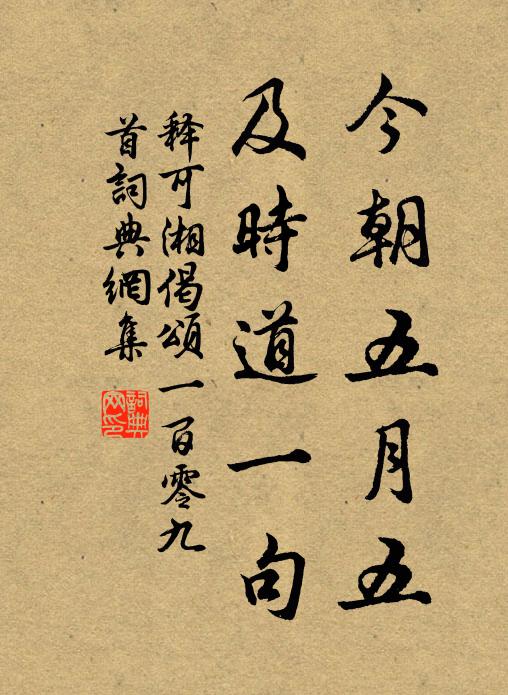 今朝五月五
及時道一句
释可湘偈頌一百零九
首詞典網集
詞典
网印